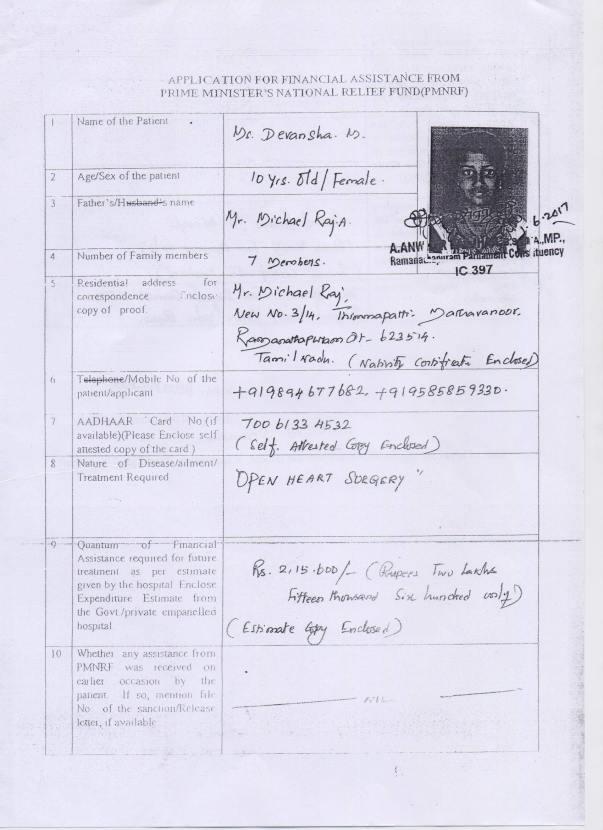 APPLICATION FOR FINANCIAL ASSISTANCE FROM
PRIME MINISTER'S NATIONAL RELIEF FUND(PMNRF)
1 Name of the Patient
Ms. Devansha. M.
2 Age/Sex of the patient
10 Yrs. Old / Female.
3 Father's/Husband's name
Mr. Michael Raj.A.
6-2017
A.ANW
MP.,
Ramanathapuram Parliament Constituency
IC 397
4 Number of Family members
7 Members.
5 Residential address for
correspondence Enclose
copy of proof.
Mr. Michael Raj,
New No. 3/14,
Ramanathapuram Dt - 623514.
Tamil Nadu. (Nativity Certificate Enclosed)
6 Telephone/Mobile No of the
patient/applicant
+919894677682, +919585859330.
7 AADHAAR Card No.(if
available)(Please Enclose self
attested copy of the card )
700 6133 4532
(Self. Attested Copy Enclosed)
8 Nature of Disease/ailment/
Treatment Required
"OPEN HEART SURGERY"
9 Quantum of Financial
Assistance required for future
treatment as per estimate
given by the hospital Enclose
Expenditure Estimate from
the Govt./private empanelled
hospital
Rs. 2,15.600/- (Rupees Two Lakhs
Fifteen thousand Six hundred only)
(Estimate Copy Enclosed)
10 Whether any assistance from
PMNRF was received on
earlier occasion by the
patient. If so, mention file
No of the sanction/Release
letter, if available
NIL